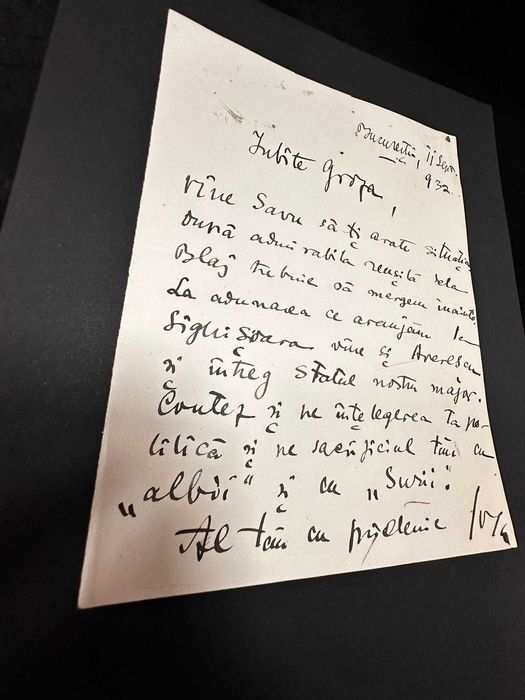 București, 11 Sept.
932.
Iubite Groza,
vine Savu să-ți arate situația.
După admirabila reușită dela
Blaj trebuie să mergem înainte.
La adunarea ce aranjăm la
Sighișoara vine și Averescu
și întreg statul nostru major.
Contez și pe înțelegerea ta po-
litică și pe sacrificiul tău cu
„albii" și cu „surii".
Al tău cu prietenie